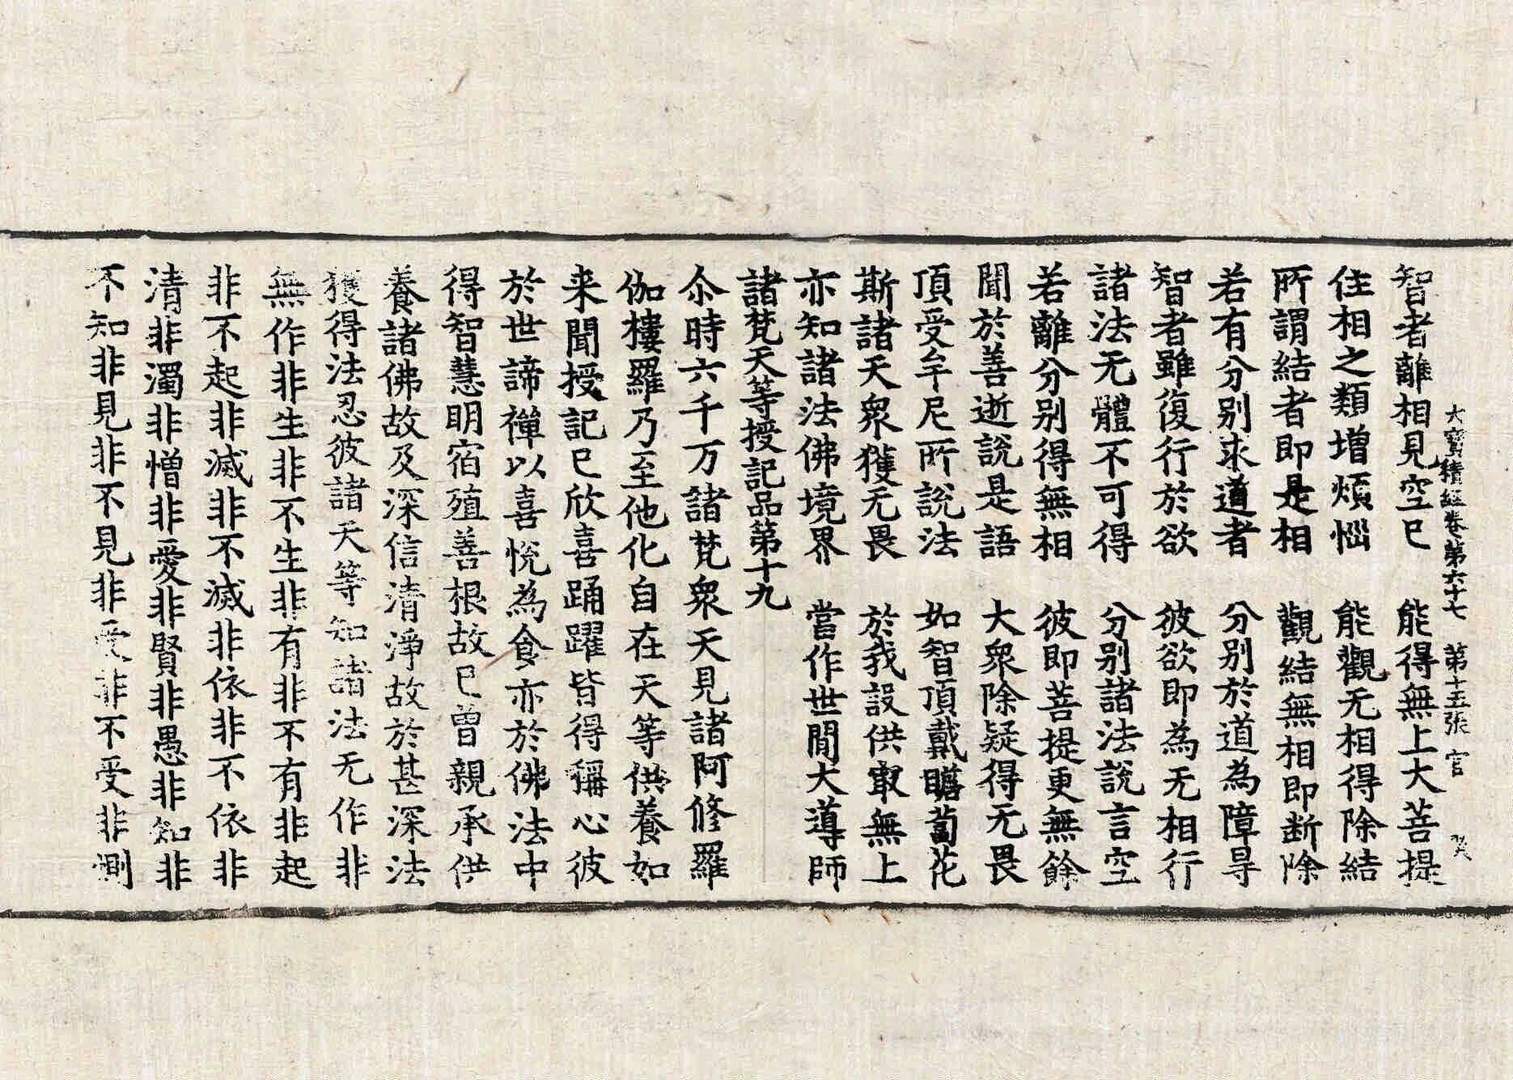 大寶積經卷第六十七　第十五張　官　癸
智者離相見空已　能得無上大菩提
住相之類增煩惱　能觀无相得除結
所謂結者即是相　觀結無相即断除
若有分別求道者　分別於道為障㝵
智者雖復行於欲　彼欲即為无相行
諸法无體不可得　分別諸法說言空
若離分別得無相　彼即菩提更無餘
聞於善逝說是語　大衆除疑得无畏
頂受牟尼所說法　如智頂戴瞻蔔花
斯諸天衆獲无畏　於我設供㝡無上
亦知諸法佛境界　當作世間大導師
諸梵天等授記品第十九
尒時六千万諸梵衆天見諸阿修羅
伽樓羅乃至他化自在天等供養如
来聞授記已欣喜踊躍皆得稱心彼
於世諦禪以喜悅為食亦於佛法中
得智慧明宿殖善根故已曾親承供
養諸佛故及深信清淨故於甚深法
獲得法忍彼諸天等知諸法无作非
無作非生非不生非有非不有非起
非不起非滅非不滅非依非不依非
清非濁非憎非愛非賢非愚非知非
不知非見非不見非受非不受非惻